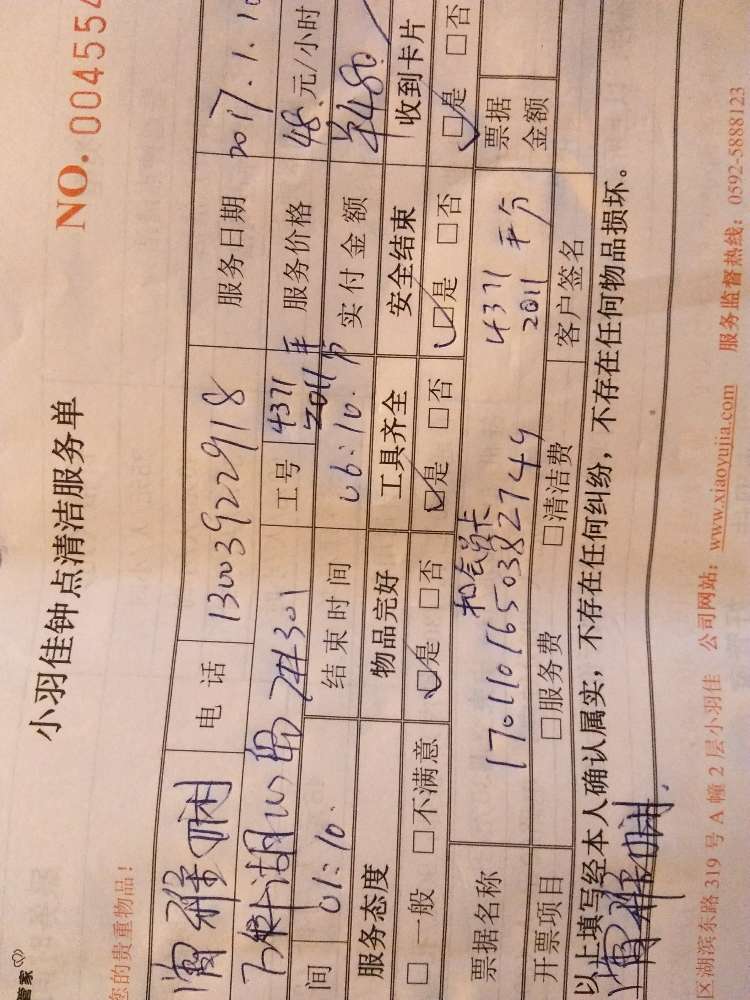 管家
小羽佳钟点清洁服务单
NO. 004554
您的贵重物品!
电话 13003922918 服务日期 2017.1.10
7#301 工号 4371 2011 平 服务价格 48 元/小时
间 01:10 结束时间 06:10 分 实付金额 ¥480
服务态度 物品完好 工具齐全 安全结束 收到卡片
□ 一般 □不满意 □是 □否 □是 □否 □是 □否 □是 □否
票据名称 扣会员卡 1701101650382744 4371 2011 平分 票据金额
开票项目 □服务费 □清洁费 客户签名
以上填写经本人确认属实,不存在任何纠纷,不存在任何物品损坏。
区湖滨东路 319 号 A 幢 2 层小羽佳 公司网站:www.xiaoyujia.com 服务监督热线:0592-5888123